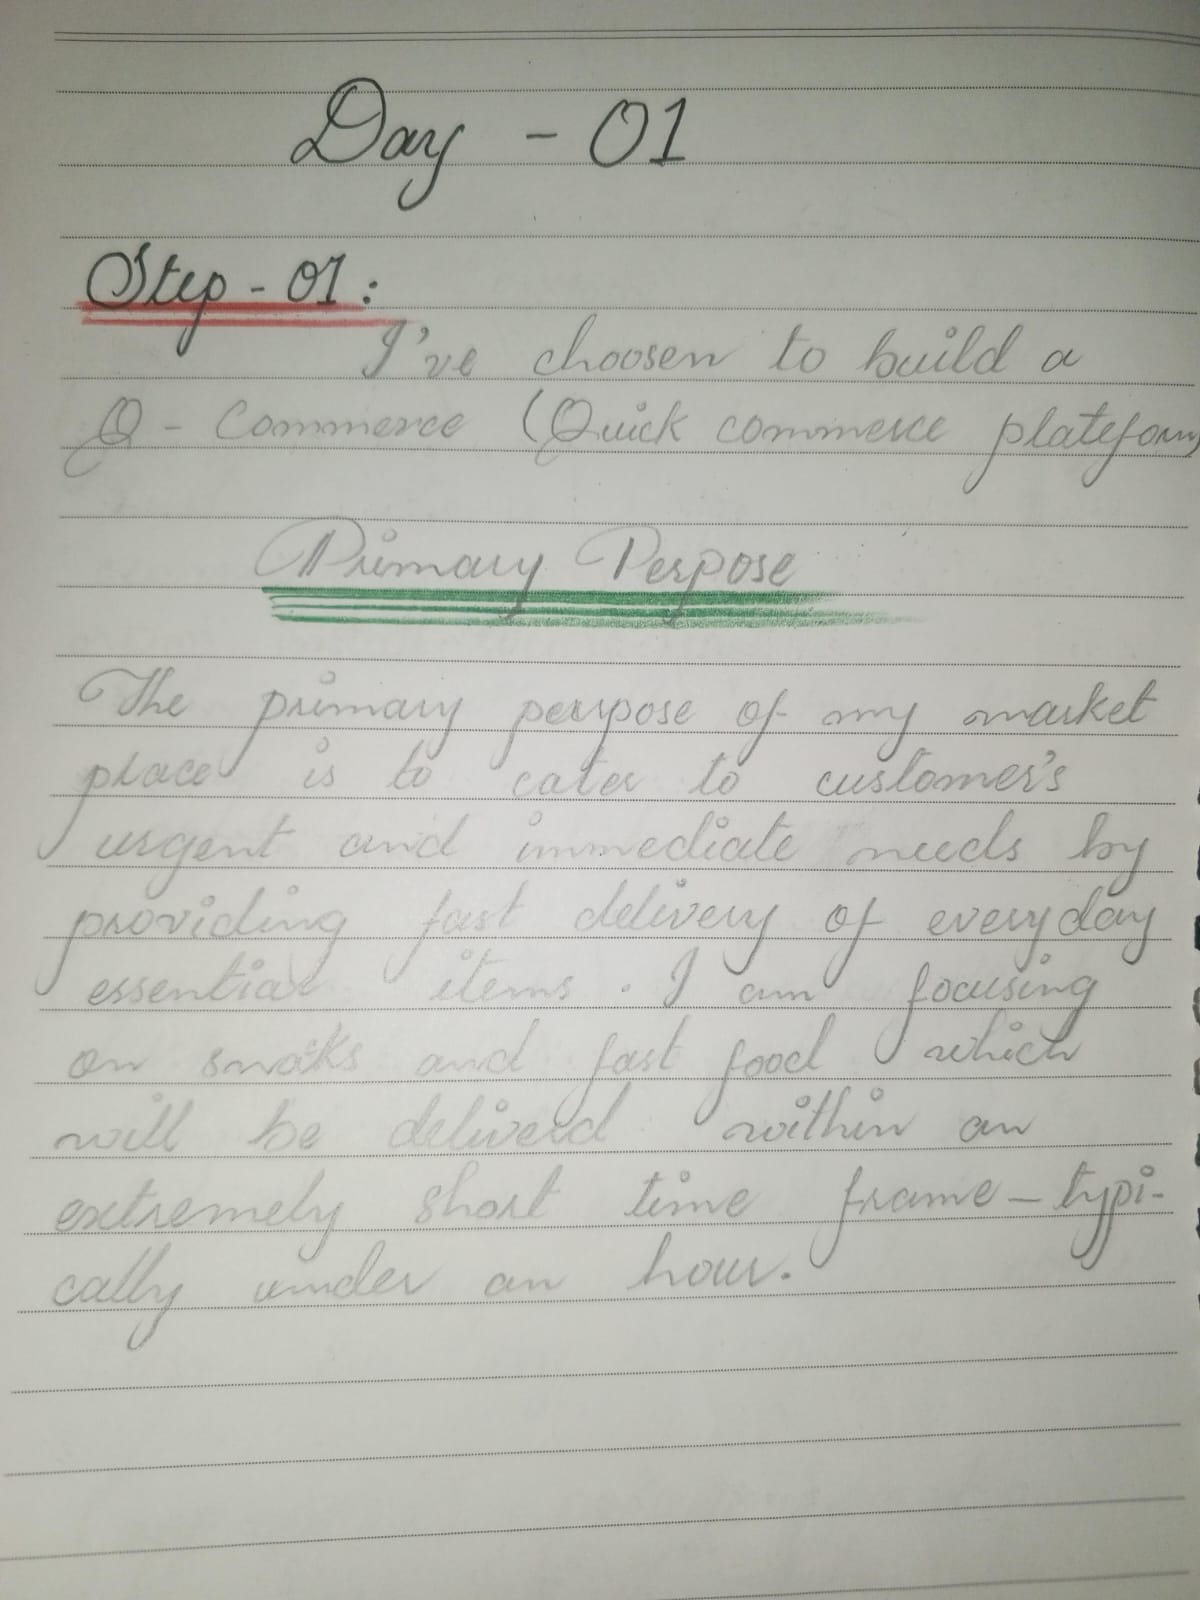 Day - 01
Step - 01:
I've choosen to build a
Q - Commerce (Quick commerce plateform)
Primary Perpose
The primary perpose of my market
place is to cater to customer's
urgent and immediate needs by
providing fast delivery of everyday
essential items. I am focusing
on snaks and fast food which
will be deliverd within an
extremely short time frame - typi-
cally under an hour.